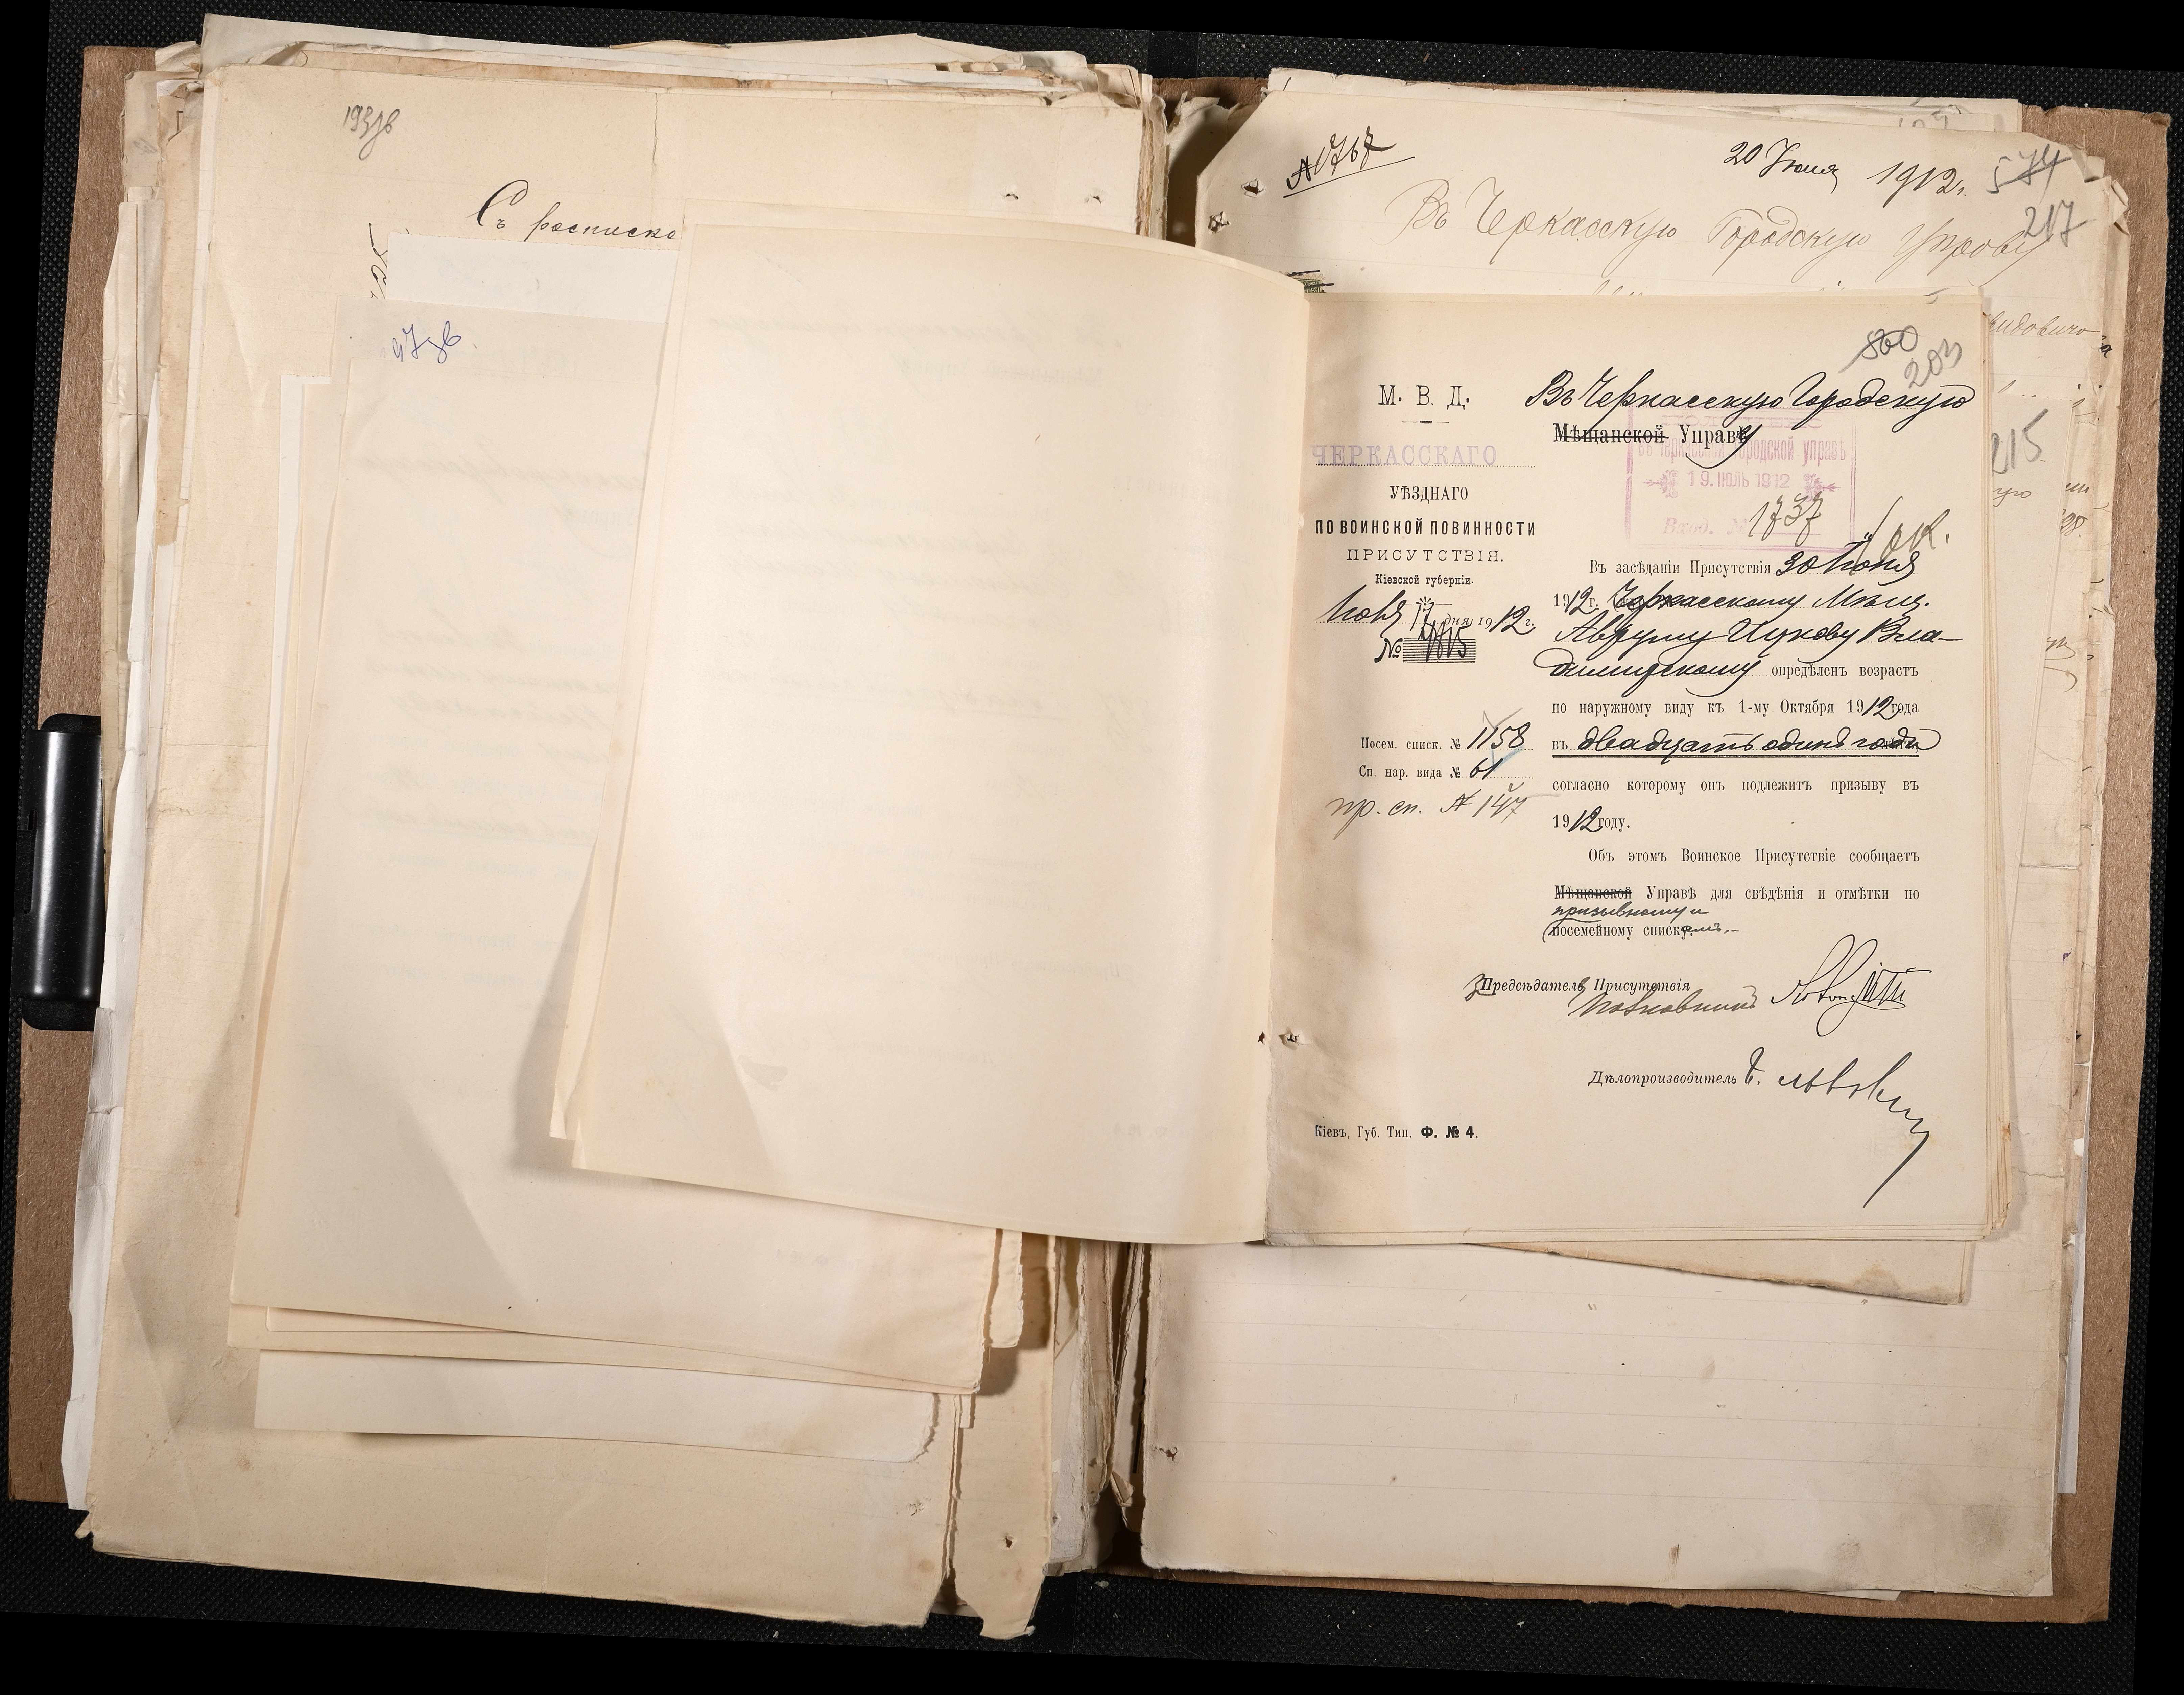 193зв
Съ росписко
97зв.
20 Іюля 1912г.
574
217
Въ Черкасскую Городскую Управу
215
800
203
М. В. Д.
ЧЕРКАССКАГО
УѢЗДНАГО
ПО ВОИНСКОЙ ПОВИННОСТИ
ПРИСУТСТВІЯ.
Кіевской губерніи.
Іюля 17 дня 1912 г.
№ 9815
Посем. списк. № 1158
Сп. нар. вида № 61
пр. сп. № 147
Въ Черкасскую Городскую
Мѣщанской Управу
въ Черкасской городской управѣ
19. ІЮЛЬ 1912
Вход. № 1737
Въ засѣданіи Присутствія 30 Іюня
1912 г. Черкасскому Мѣщ.
Авруму Ицкову Вла-
димирскому опредѣленъ возрастъ
по наружному виду къ 1-му Октября 1912 года
въ двадцать одинъ годъ
согласно которому онъ подлежитъ призыву въ
1912 году.
Объ этомъ Воинское Присутствіе сообщаетъ
Мѣщанской Управѣ для свѣдѣнія и отмѣтки по
призывному и
посемейному спискамъ.-
Предсѣдателя Присутствія
Полковникъ
Дѣлопроизводитель
Кіевъ, Губ. Тип. Ф. № 4.